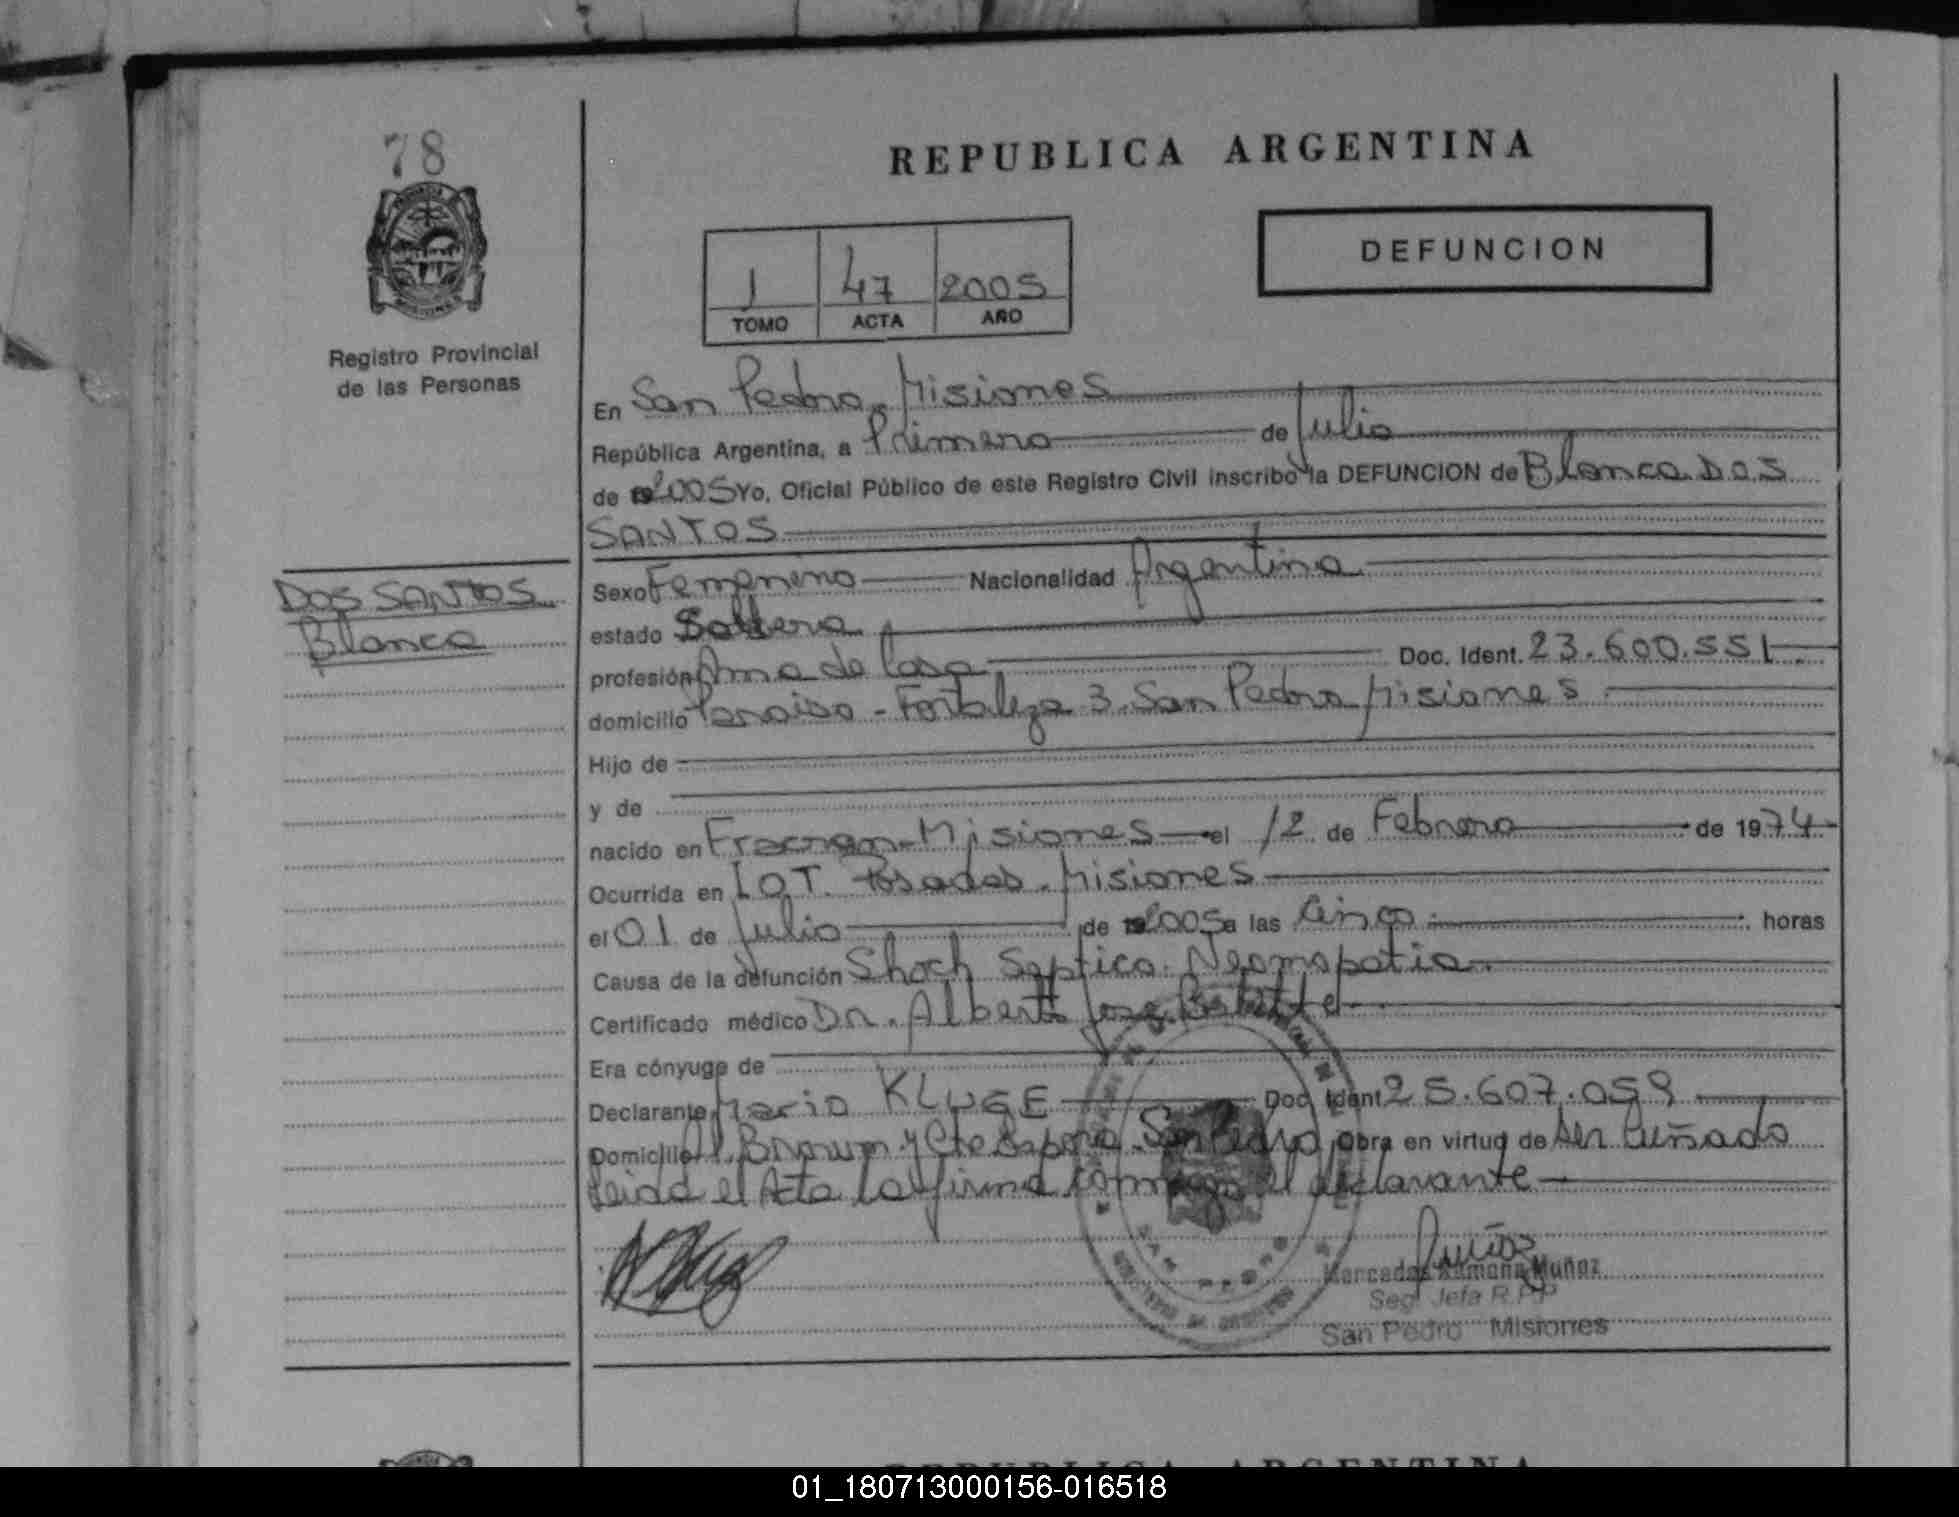 78
REPUBLICA ARGENTINA
DEFUNCION
1 47 2005
TOMO ACTA AÑO
Registro Provincial
de las Personas
En San Pedro, Misiones
República Argentina, a Primero de Julio
de 2005 Yo, Oficial Público de este Registro Civil inscribo la DEFUNCION de Blanca DOS
SANTOS
DOS SANTOS
Blanca
Sexo Femenino Nacionalidad Argentina
estado Soltera
profesión Ama de Casa Doc. Ident. 23.600.551
domicilio Paraiso - Fortaleza 3. San Pedro Misiones
Hijo de
y de
nacido en Fracran - Misiones el 12 de Febrero de 1974
Ocurrida en I.O.T. Posadas. Misiones
el 01 de Julio de 2005 a las Cinco horas
Causa de la defunción Shock Septico. Neomopatia
Certificado médico Dr. Alberto Jose
Era cónyuge de
Declarante Mario KLUGE Doc. Ident. 25.607.059
Domicilio Al. Brown y Cte San Pedro obra en virtud de ser Cuñado
Leida el Acta la firma conmigo el declarante
Mercedes Ramona Muñoz
Seg. Jefa R.P.P
San Pedro Misiones
SAN PEDRO
REPUBLICA ARGENTINA
01_180713000156-016518